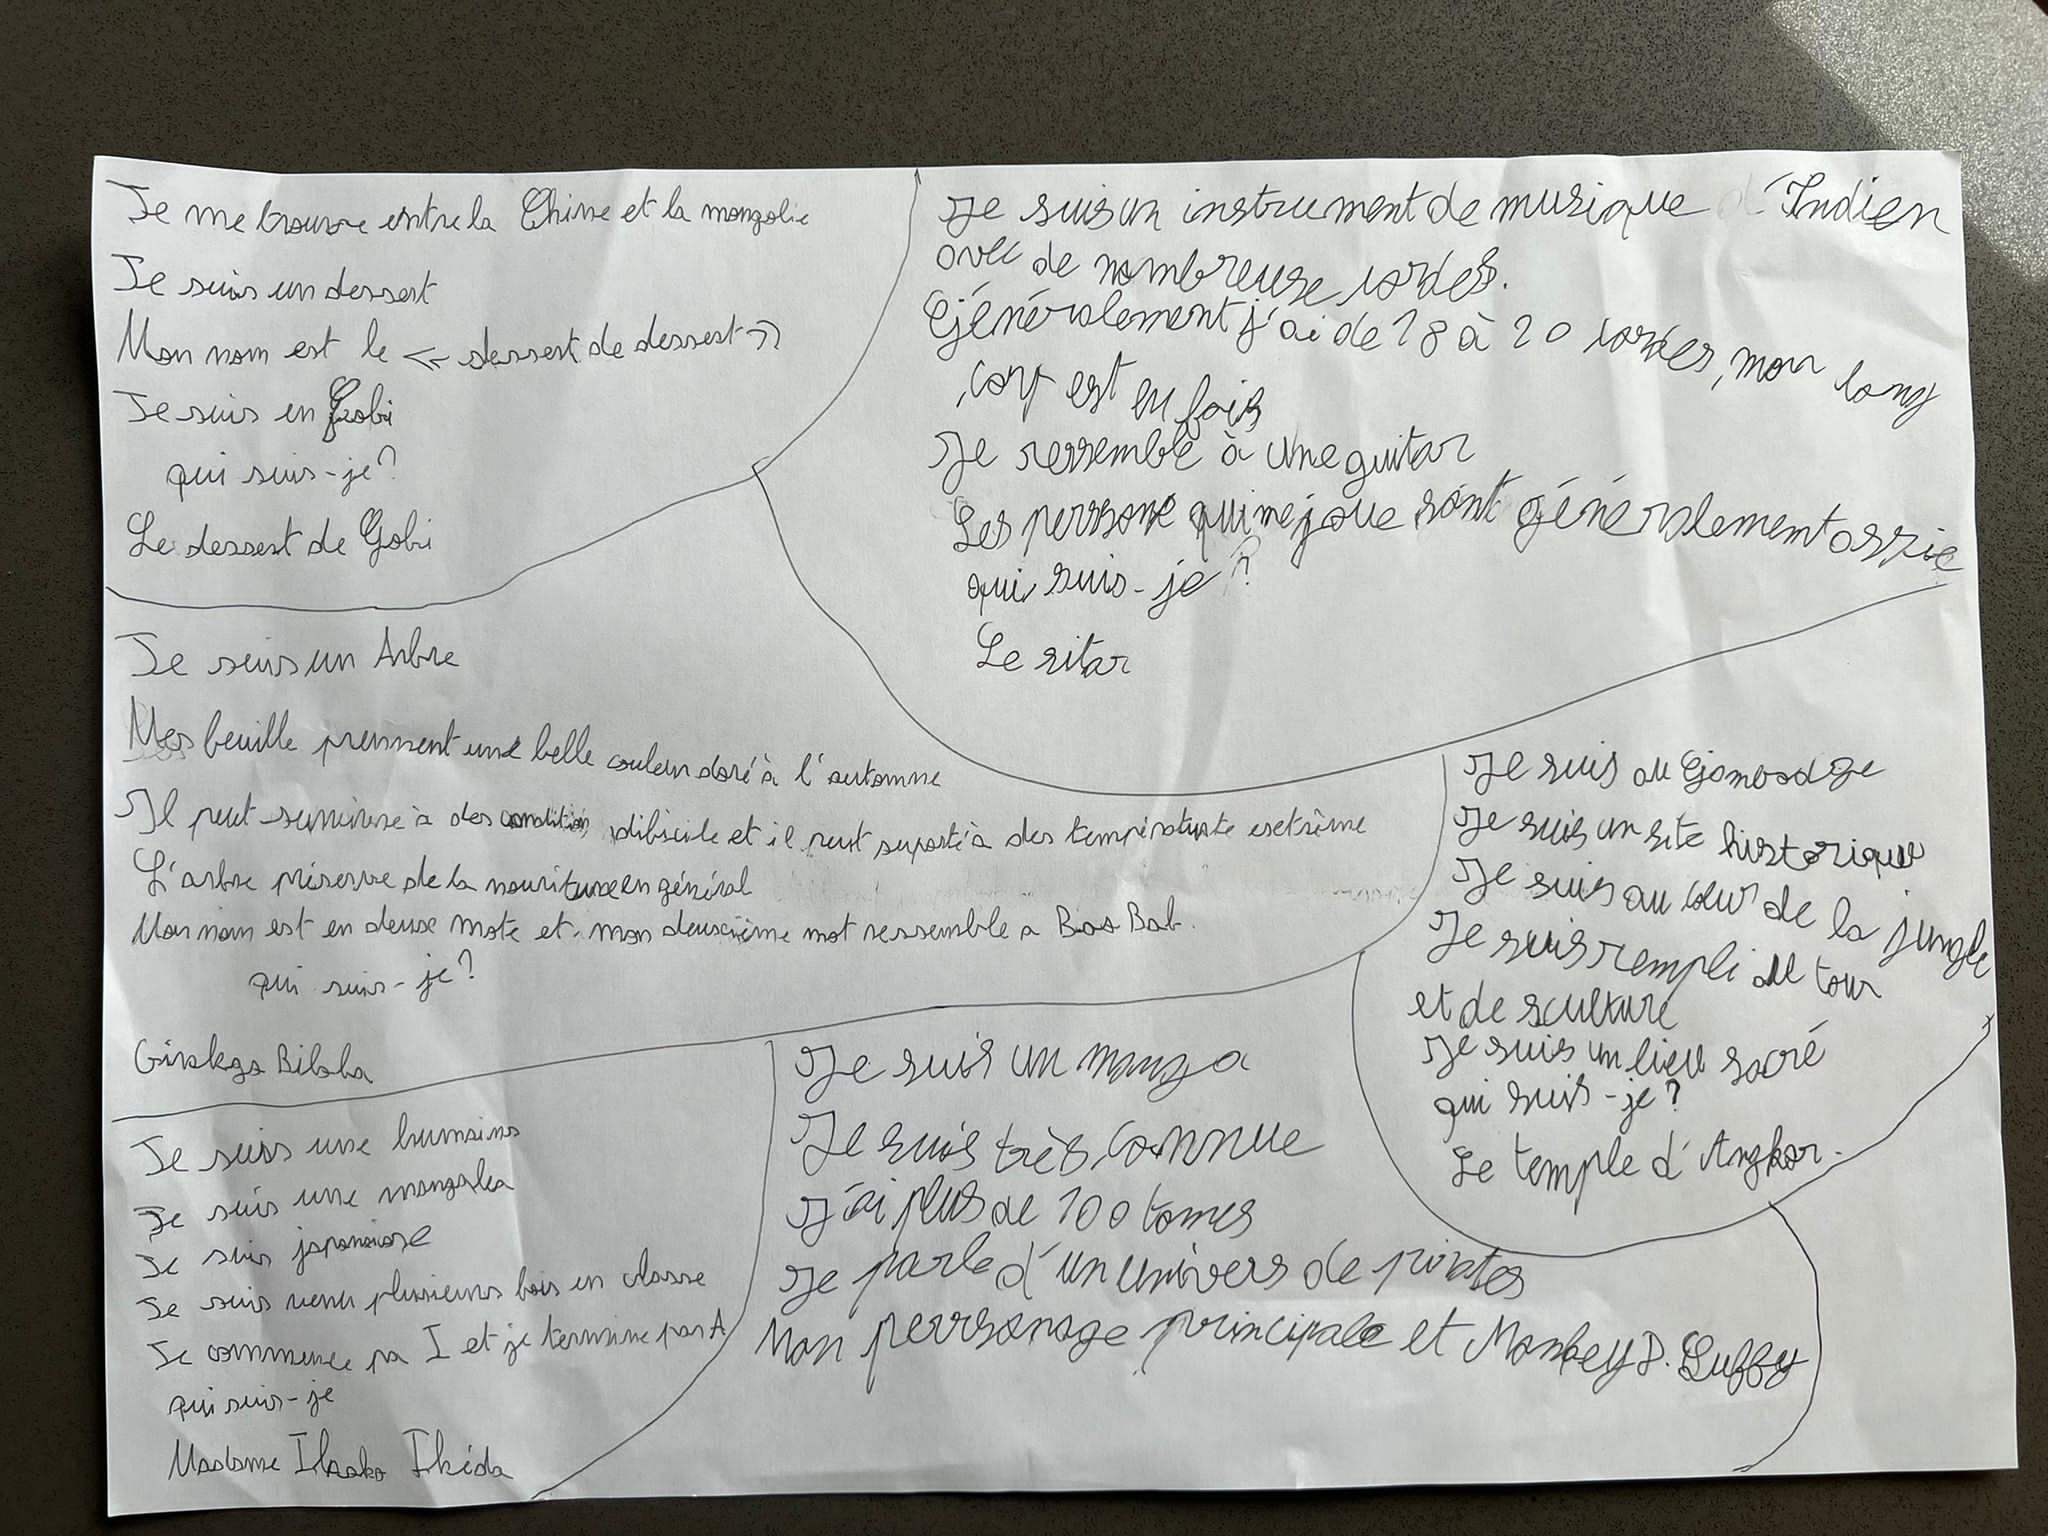 Je me trouve entre la Chine et la mongolie
Je suis un dessert
Mon nom est le « dessert de dessert »
Je suis en Gobi
qui suis-je ?
Le dessert de Gobi
Je suis un instrument de musique d'Indien
avec de nombreuse cordes.
Généralement j'ai de 18 à 20 cordes, mon long
corp est en bois
Je ressemble à une guitar
Les persone qui me joue sont généralement assie
qui suis-je ?
Le sitar
Je suis un Arbre
Mes feuille prennent une belle couleur doré à l'automne
Il peut survivre à des condition dificile et il peut suporté à des température extrème
L'arbre préserve de la nouriture en général
Mon nom est en deux mots et mon deuxième mot ressemble a Bao Bab.
qui suis-je ?
Ginkgo Biloba
Je suis au Gombodge
Je suis un site historique
Je suis au cœur de la jungle
Je suis rempli de tour
et de sculture
Je suis un lieu sacré
qui suis-je ?
Le temple d'Angkor.
Je suis une humaine
Je suis une mangaka
Je suis japonaise
Je suis venu plusieurs fois en classe
Je commence pa I et je termine par A
qui suis-je
Madame Ikida
Je suis un manga
Je suis très connue
J'ai plus de 100 tomes
Je parle d'un univers de pirates
Mon perssonage principale et Monkey D. Luffy